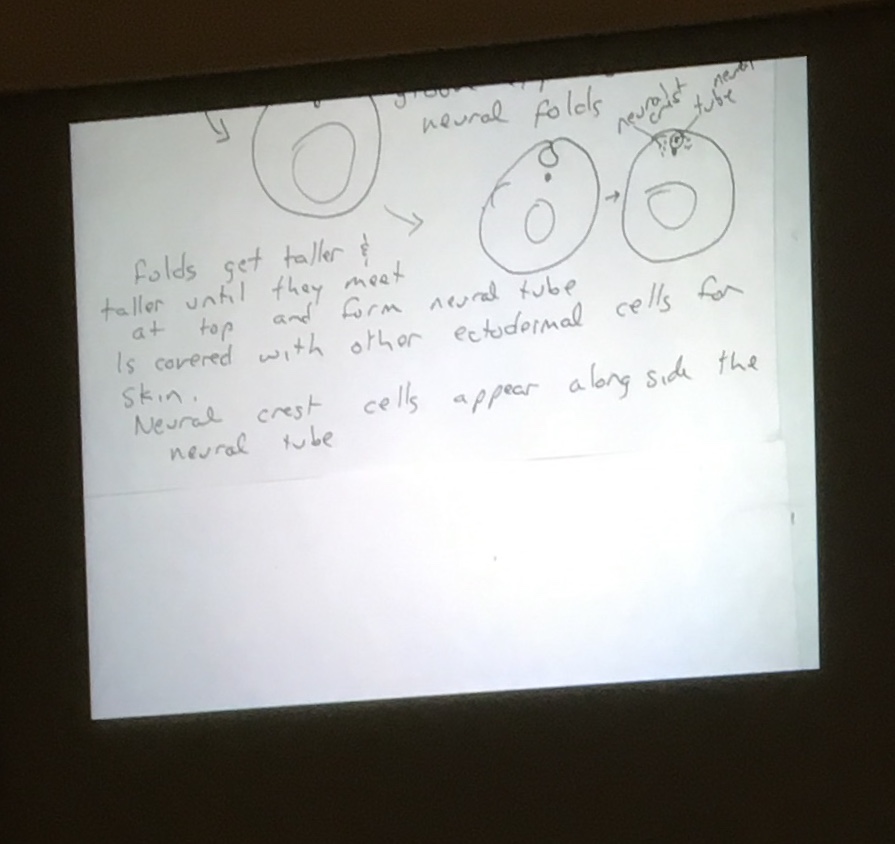 neural folds
neural
crest
neural
tube
folds get taller &
taller until they meet
at top and form neural tube
Is covered with other ectodermal cells for
skin.
Neural crest cells appear along side the
neural tube